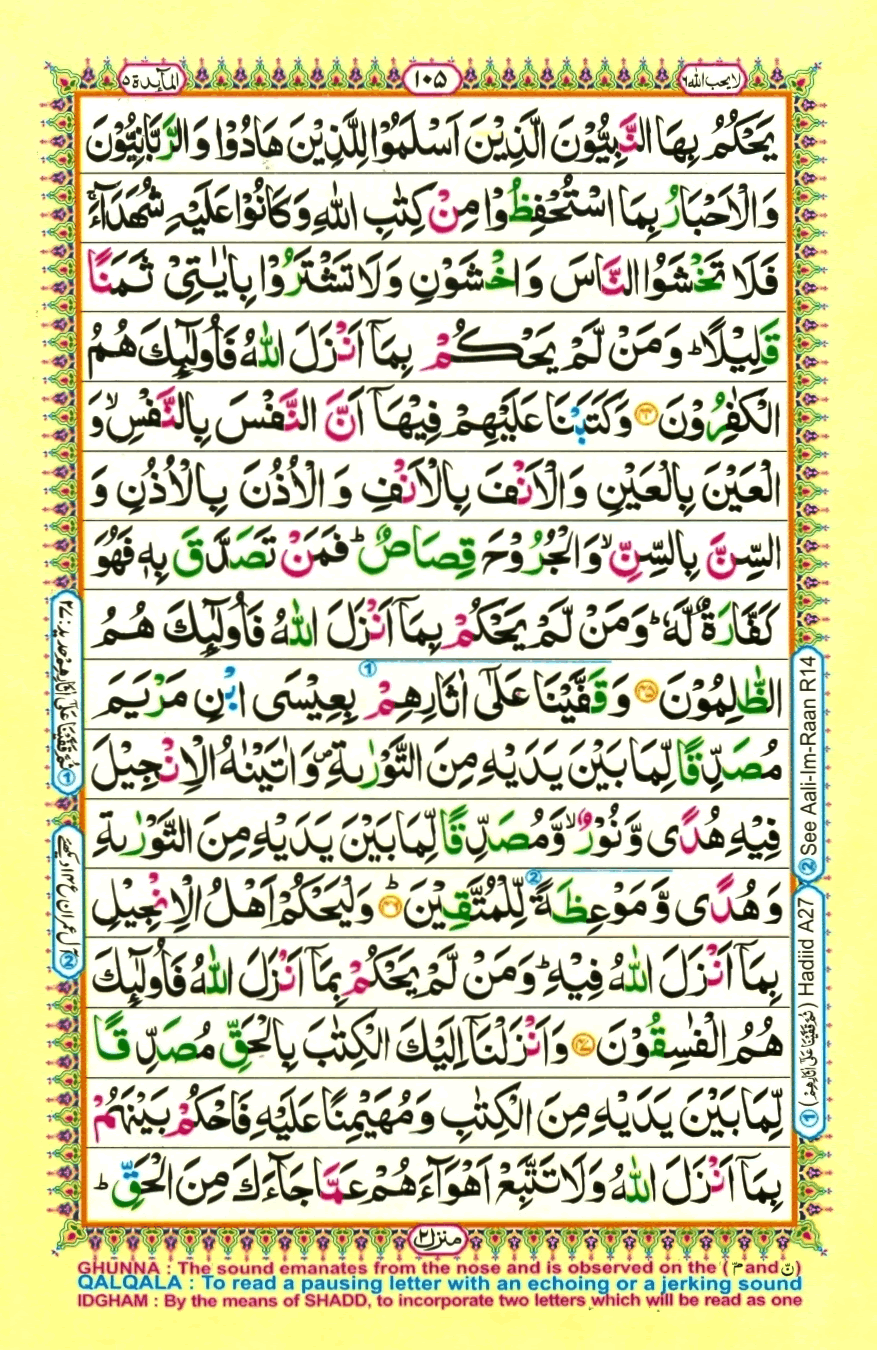 المآىِٕدة ٥
١٠٥
لا یحب الله ٦
یَحْكُمُ بِهَا النَّبِیُّوْنَ الَّذِیْنَ اَسْلَمُوْا لِلَّذِیْنَ هَادُوْا وَ الرَّبّٰنِیُّوْنَ
وَ الْاَحْبَارُ بِمَا اسْتُحْفِظُوْا مِنْ كِتٰبِ اللّٰهِ وَ كَانُوْا عَلَیْهِ شُهَدَآءَۚ
فَلَا تَخْشَوُا النَّاسَ وَ اخْشَوْنِ وَ لَا تَشْتَرُوْا بِاٰیٰتِیْ ثَمَنًا
قَلِیْلًاؕ وَ مَنْ لَّمْ یَحْكُمْ بِمَاۤ اَنْزَلَ اللّٰهُ فَاُولٰٓىِٕكَ هُمُ
الْكٰفِرُوْنَ ۴۴ وَ كَتَبْنَا عَلَیْهِمْ فِیْهَاۤ اَنَّ النَّفْسَ بِالنَّفْسِۙ وَ
الْعَیْنَ بِالْعَیْنِ وَ الْاَنْفَ بِالْاَنْفِ وَ الْاُذُنَ بِالْاُذُنِ وَ
السِّنَّ بِالسِّنِّۙ وَ الْجُرُوْحَ قِصَاصٌؕ فَمَنْ تَصَدَّقَ بِهٖ فَهُوَ
كَفَّارَةٌ لَّهٗؕ وَ مَنْ لَّمْ یَحْكُمْ بِمَاۤ اَنْزَلَ اللّٰهُ فَاُولٰٓىِٕكَ هُمُ
الظّٰلِمُوْنَ ۴۵ وَ قَفَّیْنَا عَلٰۤی اٰثَارِهِمْ ① بِعِیْسَی ابْنِ مَرْیَمَ
مُصَدِّقًا لِّمَا بَیْنَ یَدَیْهِ مِنَ التَّوْرٰىةِ۪ وَ اٰتَیْنٰهُ الْاِنْجِیْلَ
فِیْهِ هُدًی وَّ نُوْرٌۙ وَّ مُصَدِّقًا لِّمَا بَیْنَ یَدَیْهِ مِنَ التَّوْرٰىةِ
وَ هُدًی وَّ مَوْعِظَةً ② لِّلْمُتَّقِیْنَؕ ۴۶ وَ لْیَحْكُمْ اَهْلُ الْاِنْجِیْلِ
بِمَاۤ اَنْزَلَ اللّٰهُ فِیْهِؕ وَ مَنْ لَّمْ یَحْكُمْ بِمَاۤ اَنْزَلَ اللّٰهُ فَاُولٰٓىِٕكَ
هُمُ الْفٰسِقُوْنَ ۴۷ وَ اَنْزَلْنَاۤ اِلَیْكَ الْكِتٰبَ بِالْحَقِّ مُصَدِّقًا
لِّمَا بَیْنَ یَدَیْهِ مِنَ الْكِتٰبِ وَ مُهَیْمِنًا عَلَیْهِ فَاحْكُمْ بَیْنَهُمْ
بِمَاۤ اَنْزَلَ اللّٰهُ وَ لَا تَتَّبِعْ اَهْوَآءَهُمْ عَمَّا جَآءَكَ مِنَ الْحَقِّؕ
② See Aali-Im-Raan R14
① (ثُمَّ قَفَّیْنَا عَلٰۤی اٰثَارِهِمْ) Hadiid A27
① ثُمَّ قَفَّیْنَا عَلٰۤی اٰثَارِهِمْ حدید: ٢٧
② آل عمران ع ١٤ دیکھئے
منزل ٢
GHUNNA : The sound emanates from the nose and is observed on the ( مّ and نّ )
QALQALA : To read a pausing letter with an echoing or a jerking sound
IDGHAM : By the means of SHADD, to incorporate two letters which will be read as one